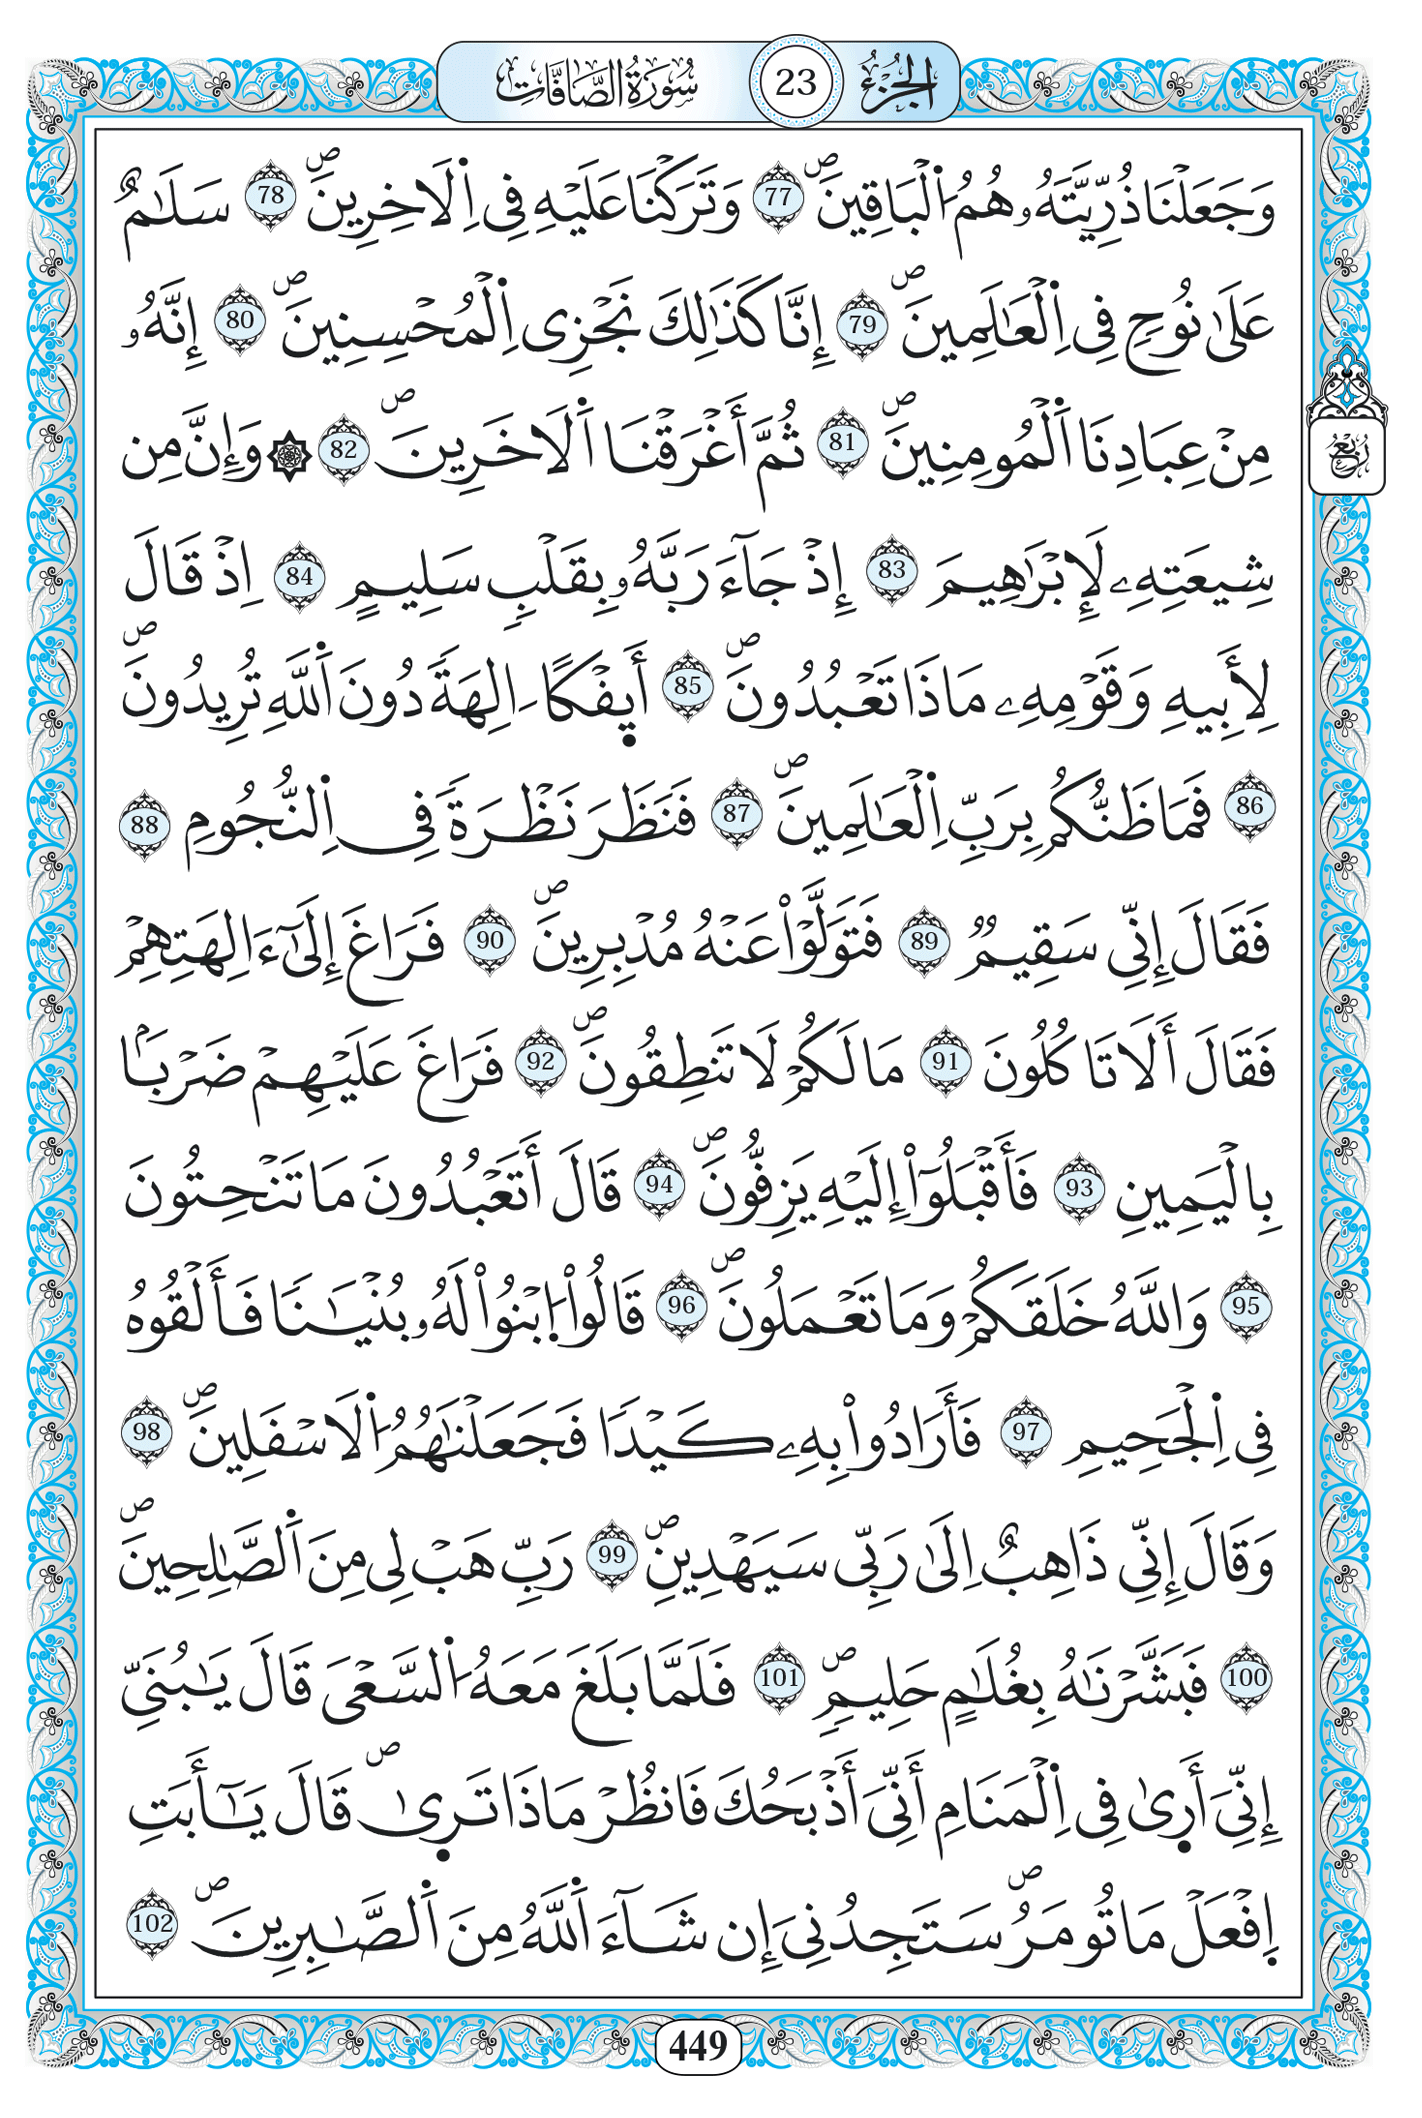 الجزء 23 سورة الصافات
وَجَعَلْنَا ذُرِّيَّتَهُۥ هُمُ اُ۬لْبَاقِينَۖ 77 وَتَرَكْنَا عَلَيْهِ فِے اِ۬لَاخِرِينَۖ 78 سَلَٰمٌ
عَلَىٰ نُوحٖ فِے اِ۬لْعَٰلَمِينَۖ 79 إِنَّا كَذَٰلِكَ نَجْزِے اِ۬لْمُحْسِنِينَۖ 80 إِنَّهُۥ
مِنْ عِبَادِنَا اَ۬لْمُومِنِينَۖ 81 ثُمَّ أَغْرَقْنَا اَ۬لَاخَرِينَۖ 82 ۞ وَإِنَّ مِن
شِيعَتِهِۦ لَإِبْرَٰهِيمَ 83 إِذْ جَآءَ رَبَّهُۥ بِقَلْبٖ سَلِيمٍ 84 اِذْ قَالَ
لِأَبِيهِ وَقَوْمِهِۦ مَاذَا تَعْبُدُونَۖ 85 أَئِ۪فْكاً اٰلِهَةٗ دُونَ اَ۬للَّهِ تُرِيدُونَۖ
86 فَمَا ظَنُّكُم بِرَبِّ اِ۬لْعَٰلَمِينَۖ 87 فَنَظَرَ نَظْرَةٗ فِے اِ۬لنُّجُومِ 88
فَقَالَ إِنِّے سَقِيمٞ 89 فَتَوَلَّوْاْ عَنْهُ مُدْبِرِينَۖ 90 فَرَاغَ إِلَىٰٓ ءَالِهَتِهِمْ
فَقَالَ أَلَا تَاكُلُونَ 91 مَا لَكُمْ لَا تَنطِقُونَۖ 92 فَرَاغَ عَلَيْهِمْ ضَرْباَۢ
بِالْيَمِينِ 93 فَأَقْبَلُوٓاْ إِلَيْهِ يَزِفُّونَۖ 94 قَالَ أَتَعْبُدُونَ مَا تَنْحِتُونَ
95 وَاللَّهُ خَلَقَكُمْ وَمَا تَعْمَلُونَۖ 96 قَالُواْ اُ۪بْنُواْ لَهُۥ بُنْيَٰناٗ فَأَلْقُوهُ
فِے اِ۬لْجَحِيمِ 97 فَأَرَادُواْ بِهِۦ كَيْداٗ فَجَعَلْنَٰهُمُ اُ۬لَاسْفَلِينَۖ 98
وَقَالَ إِنِّے ذَاهِبٌ اِلَىٰ رَبِّے سَيَهْدِينِۖ 99 رَبِّ هَبْ لِے مِنَ اَ۬لصَّٰلِحِينَۖ
100 فَبَشَّرْنَٰهُ بِغُلَٰمٍ حَلِيمٖۖ 101 فَلَمَّا بَلَغَ مَعَهُ اُ۬لسَّعْيَ قَالَ يَٰبُنَيِّ
إِنِّيَ أَر۪ىٰ فِے اِ۬لْمَنَامِ أَنِّيَ أَذْبَحُكَ فَانظُرْ مَاذَا تَر۪ىٰۖ قَالَ يَٰٓأَبَتِ
اِ۪فْعَلْ مَا تُومَرُۖ سَتَجِدُنِيَ إِن شَآءَ اَ۬للَّهُ مِنَ اَ۬لصَّٰبِرِينَۖ 102
ربع
449